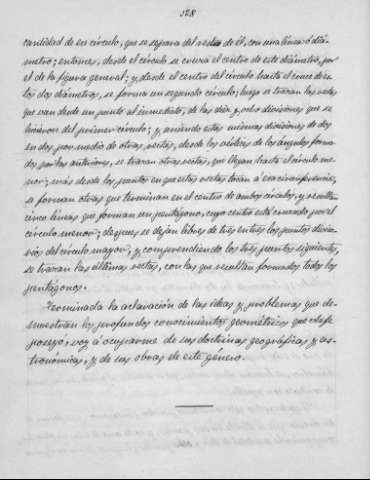 128
cantidad de su círculo, que se separa del resto de él, con una línea ó diá-
metro; entonces, desde el círculo se cruza el centro de este diámetro, por
el de la figura general; y, desde el centro del círculo hasta el cruce de
los dos diámetros, se forma un segundo círculo; luego se tiran las rectas
que van desde un punto al inmediato, de las diez y ocho divisiones que se
hicieron del primer círculo; y, uniendo estas mismas divisiones de dos
en dos por medio de otras rectas, desde los vértices de los ángulos forma-
dos por las anteriores, se tiran otras rectas, que llegan hasta el círculo me-
nor; más desde los puntos en que estas rectas tocan á esa circunferencia,
se forman otras que terminan en el centro de ambos círculos, y resultan
cinco líneas que forman un pentágono, cuyo centro está cruzado por el
círculo menor; después se dejan libres de tres en tres los puntos diviso-
rios del círculo mayor, y comprendiendo los tres puntos siguientes,
se trazan las últimas rectas, con las que resultan formados todos los
pentágonos.
Terminada la aclaración de las ideas y problemas que de-
muestran los profundos conocimientos geométricos que este
poseyó, voy á ocuparme de sus doctrinas geográficas y as-
tronómicas, y de sus obras de este género.